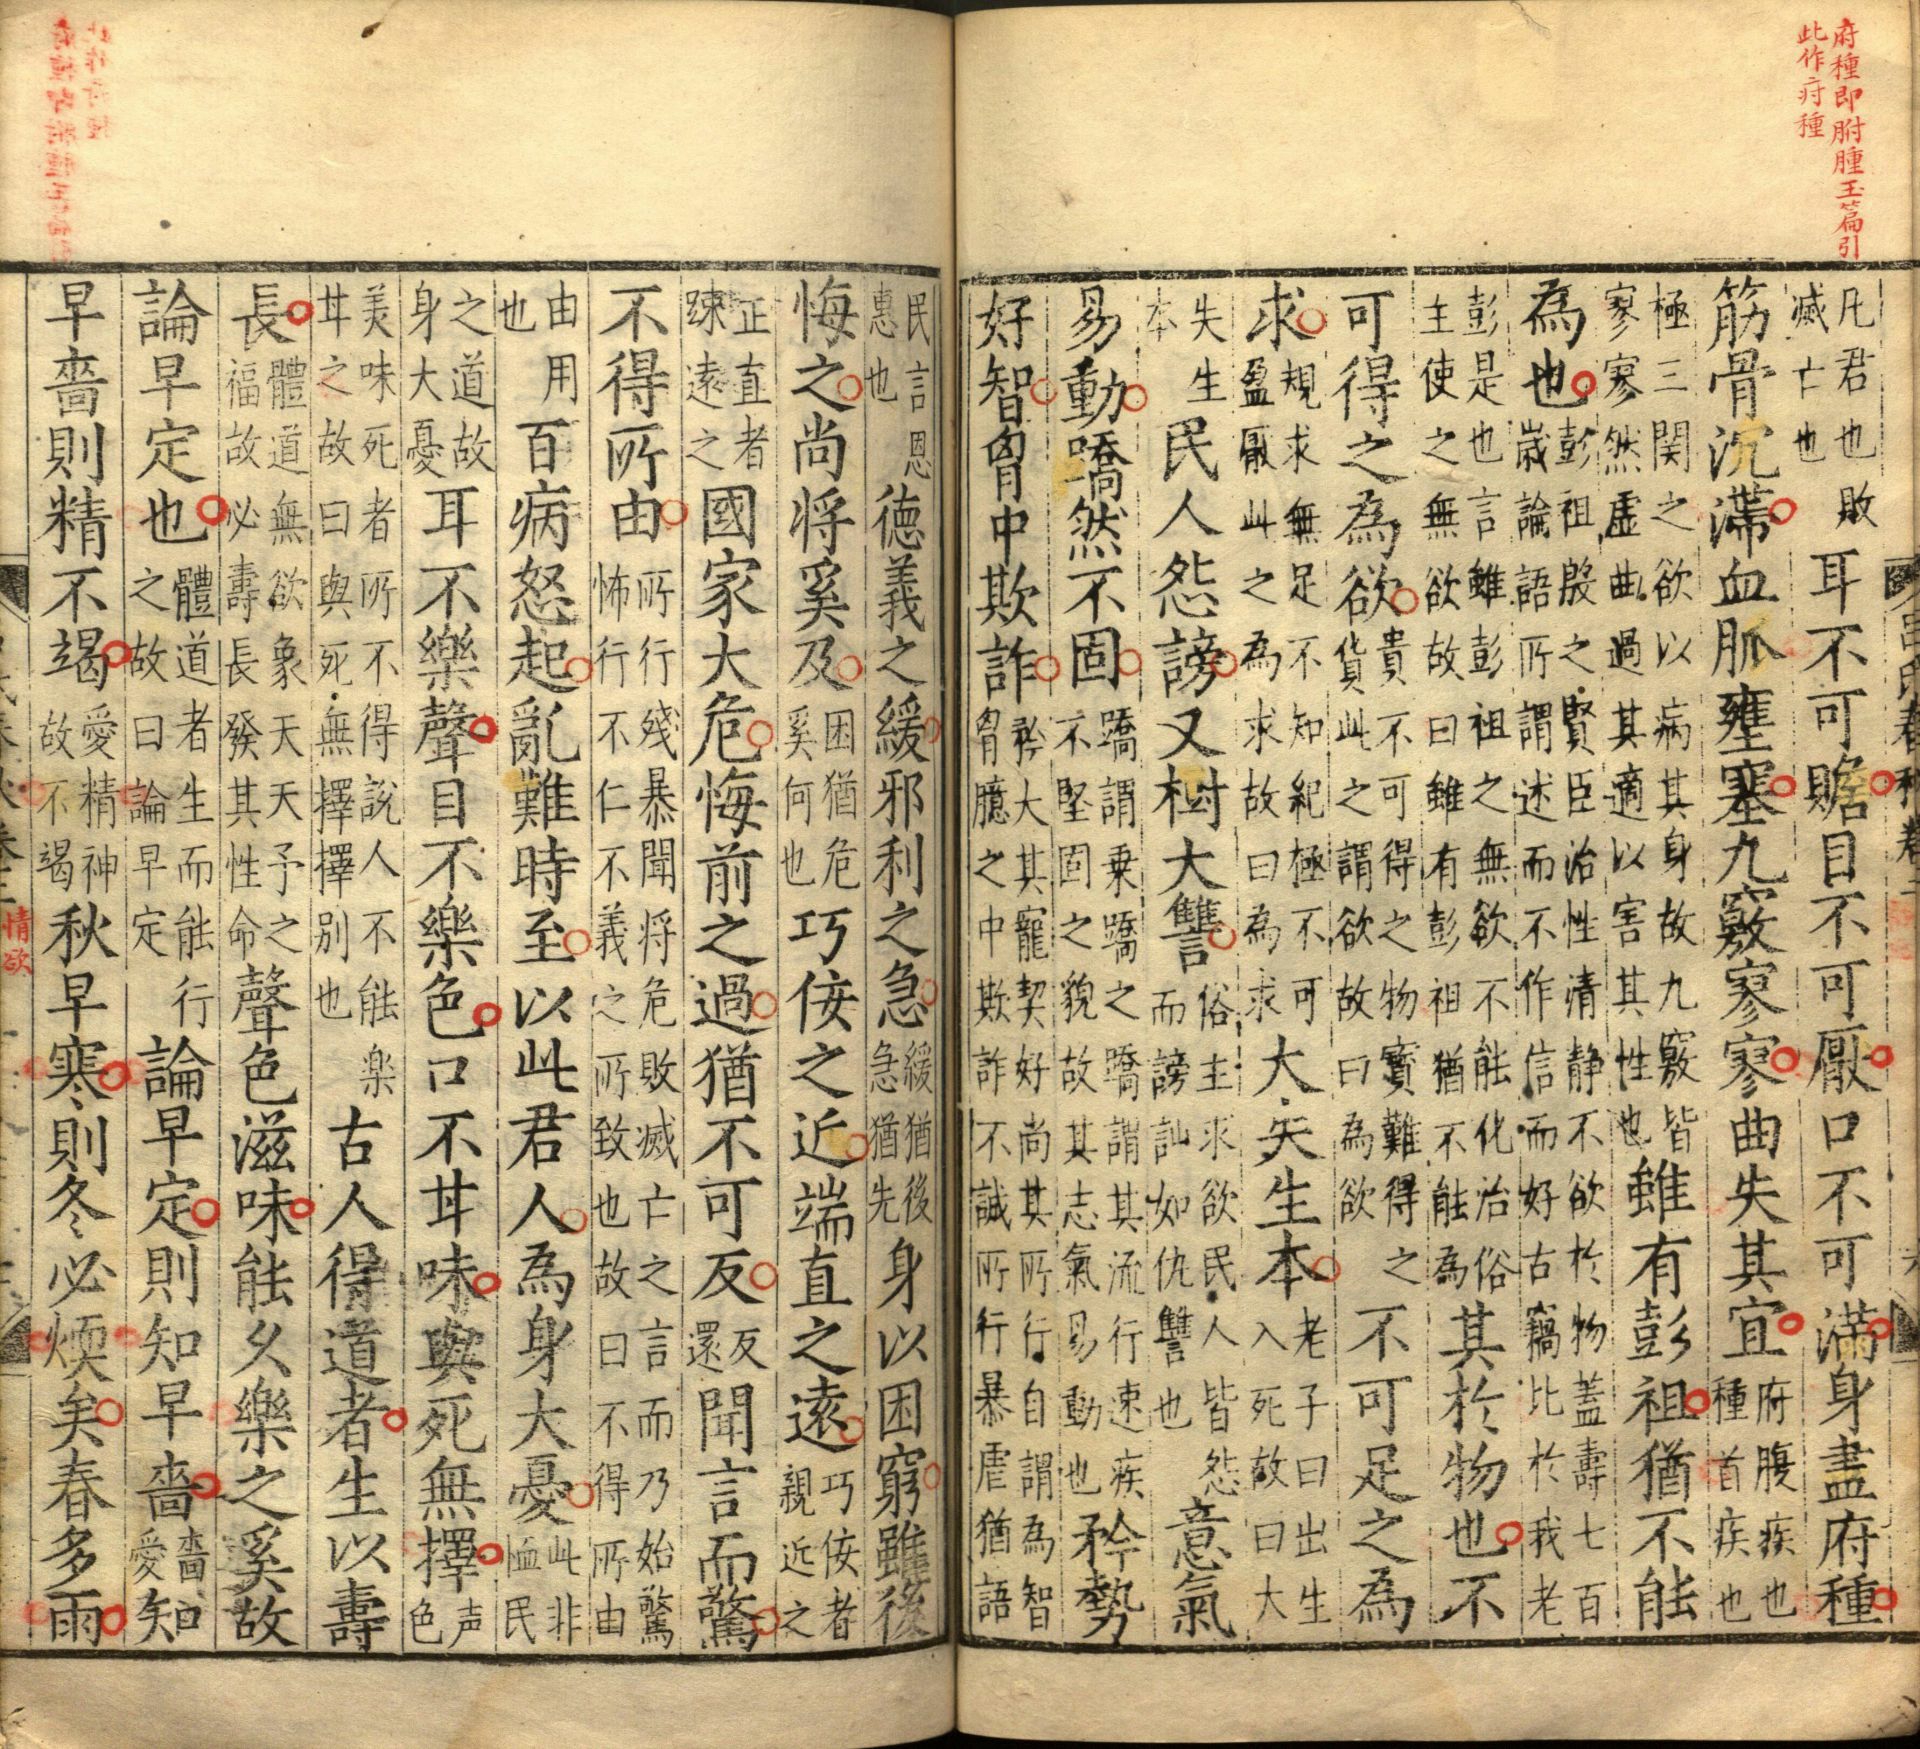 府種即胕腫玉篇引
此作疛種
凡君也敗滅亡也耳不可贍目不可厭口不可滿身盡府種
筋骨沉滯血脈壅塞九竅寥寥曲失其宜府腹疾也種首疾也
極三関之欲以病其身故九竅皆寥寥然虛曲過其適以害其性也雖有彭祖猶不能
為也彭祖殷之賢臣治性清静不欲於物蓋壽七百歲論語所謂述而不作信而好古竊比於我老
彭是也言雖彭祖之無欲不能化治俗主使之無欲故曰雖有彭祖猶不能為其於物也不
可得之為欲貴不可得之物寳難得之貨此之謂欲故曰為欲不可足之為
求規求無足不知紀極不可盈厭此之為求故曰為求大失生本老子曰出生入死故曰大
失生本民人怨謗又樹大讐俗主求欲民人皆怨而謗訕如仇讐也意氣
易動蹻然不固蹻謂乗蹻之蹻謂其流行速疾不堅固之貌故其志氣易動也矜勢
好智胷中欺詐矜大其寵契好尚其所行自謂為智胷臆之中欺詐不誠所行暴虐猶語
民言恩惠也德義之緩邪利之急緩猶後急猶先身以困窮雖後
悔之尚将奚及困猶危奚何也巧佞之近端直之遠巧佞者親近之
正直者踈遠之國家大危悔前之過猶不可反反還聞言而驚
不得所由所行殘暴聞将危敗滅亡之言而乃始驚怖行行不仁不義之所致也故曰不得所由
由用也百病怒起亂難時至以此君人為身大憂此非恤民
之道故身大憂耳不樂聲目不樂色口不甘味與死無擇声色
美味死者所不得說人不能楽甘之故曰與死無擇擇別也古人得道者生以壽
長體道無欲象天天予之福故必壽長發其性命聲色滋味能乆樂之奚故
論早定也體道者生而能行之故曰論早定論早定則知早嗇嗇愛知
早嗇則精不竭愛精神故不竭秋早寒則冬必煗矣春多雨
情欲